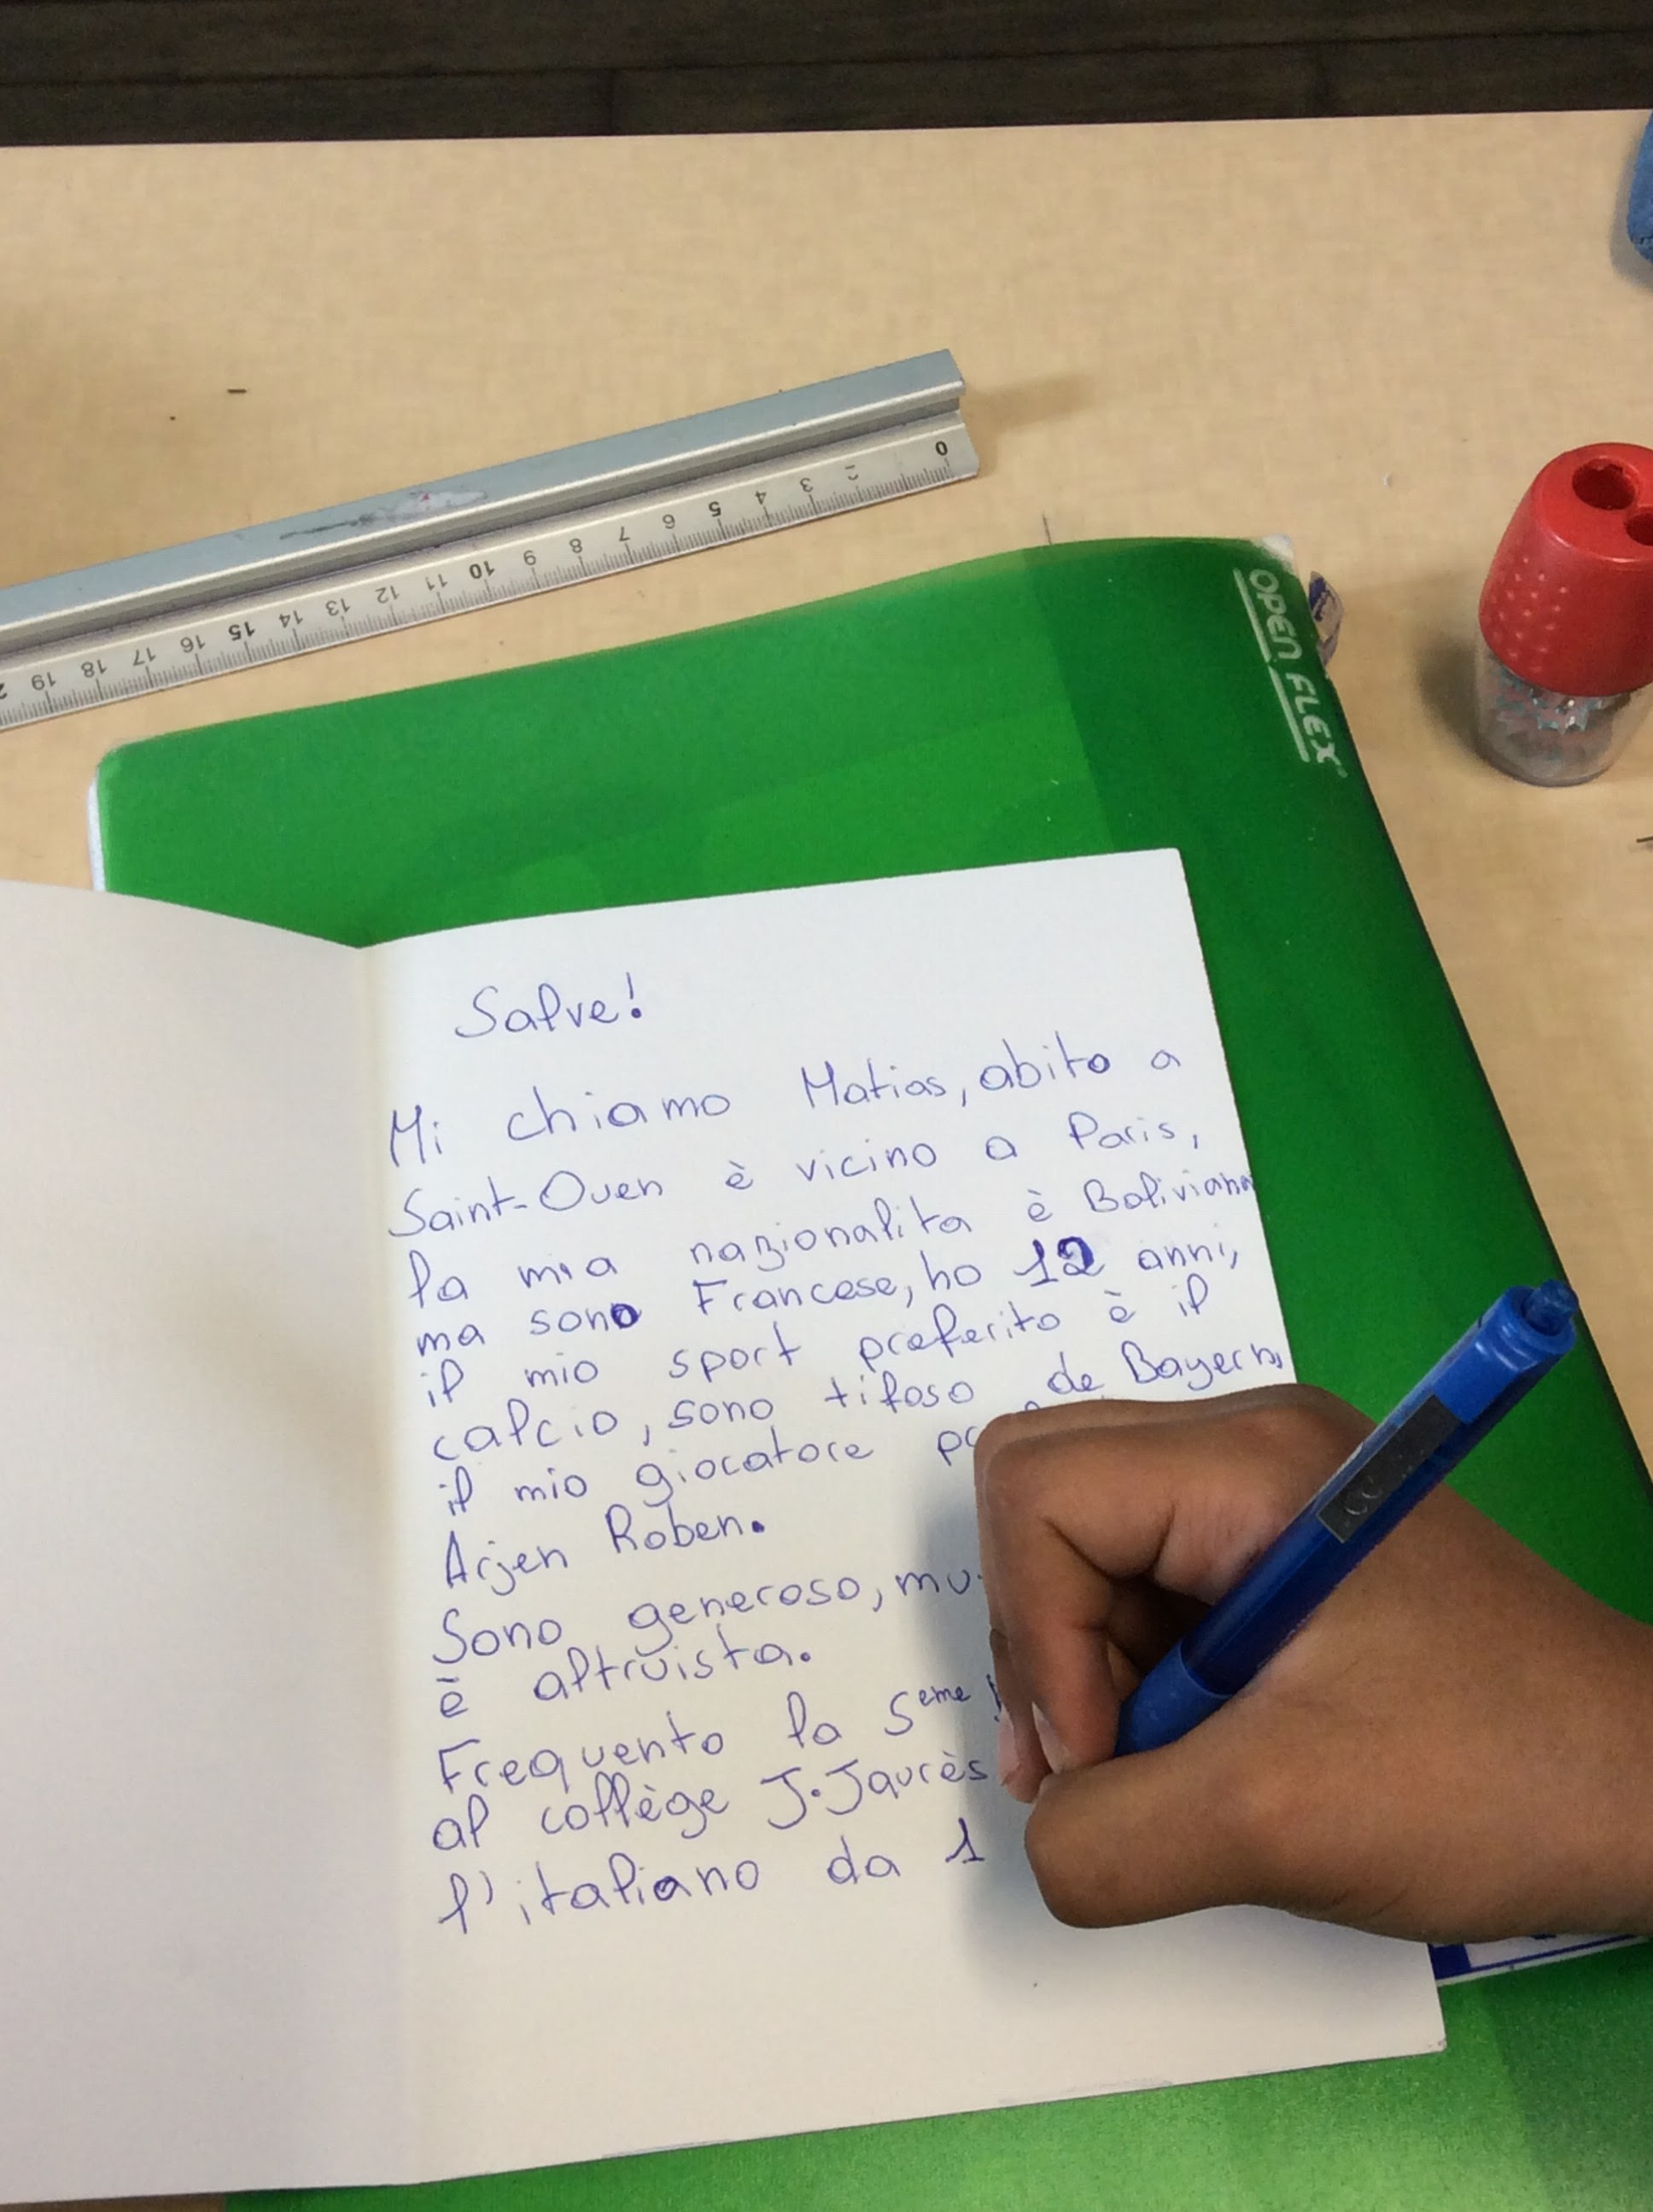 0 2 3 4 5 6 7 8 9 10 11 12 13 14 15 16 17 18 19
OPEN FLEX
Salve!
Mi chiamo Matias, abito a
Saint-Ouen è vicino a Paris,
la mia nazionalita è Boliviana
ma sono Francese, ho 12 anni,
il mio sport preferito è il
calcio, sono tifoso de Bayern,
il mio giocatore
Arjen Roben.
Sono generoso,
è altruista.
Frequento la 5eme
al collège J.Jaurès
l'italiano da 1